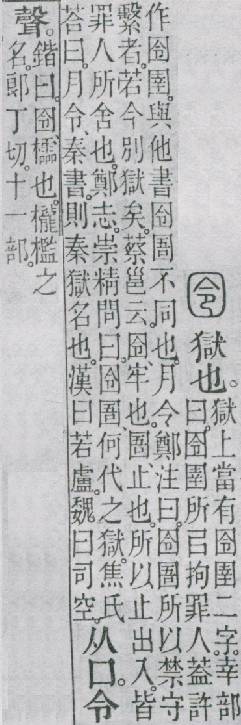 囹 獄也。
獄上當有囹圉二字。幸部
曰。囹圉所㠯拘罪人。蓋許
作囹圉。與他書囹圄不同也。月令鄭注曰。囹圄所以禁守
繫者。若今別獄矣。蔡邕云。囹、牢也。圄、止也。所以止出入。皆
罪人所舍也。鄭志。崇精問曰。囹圄、何代之獄。焦氏
荅曰。月令、秦書。則秦獄名也。漢曰若盧。魏曰司空。
从囗。令
聲。
鍇曰。囹、櫺也。櫳檻之
名。郎丁切。十一部。